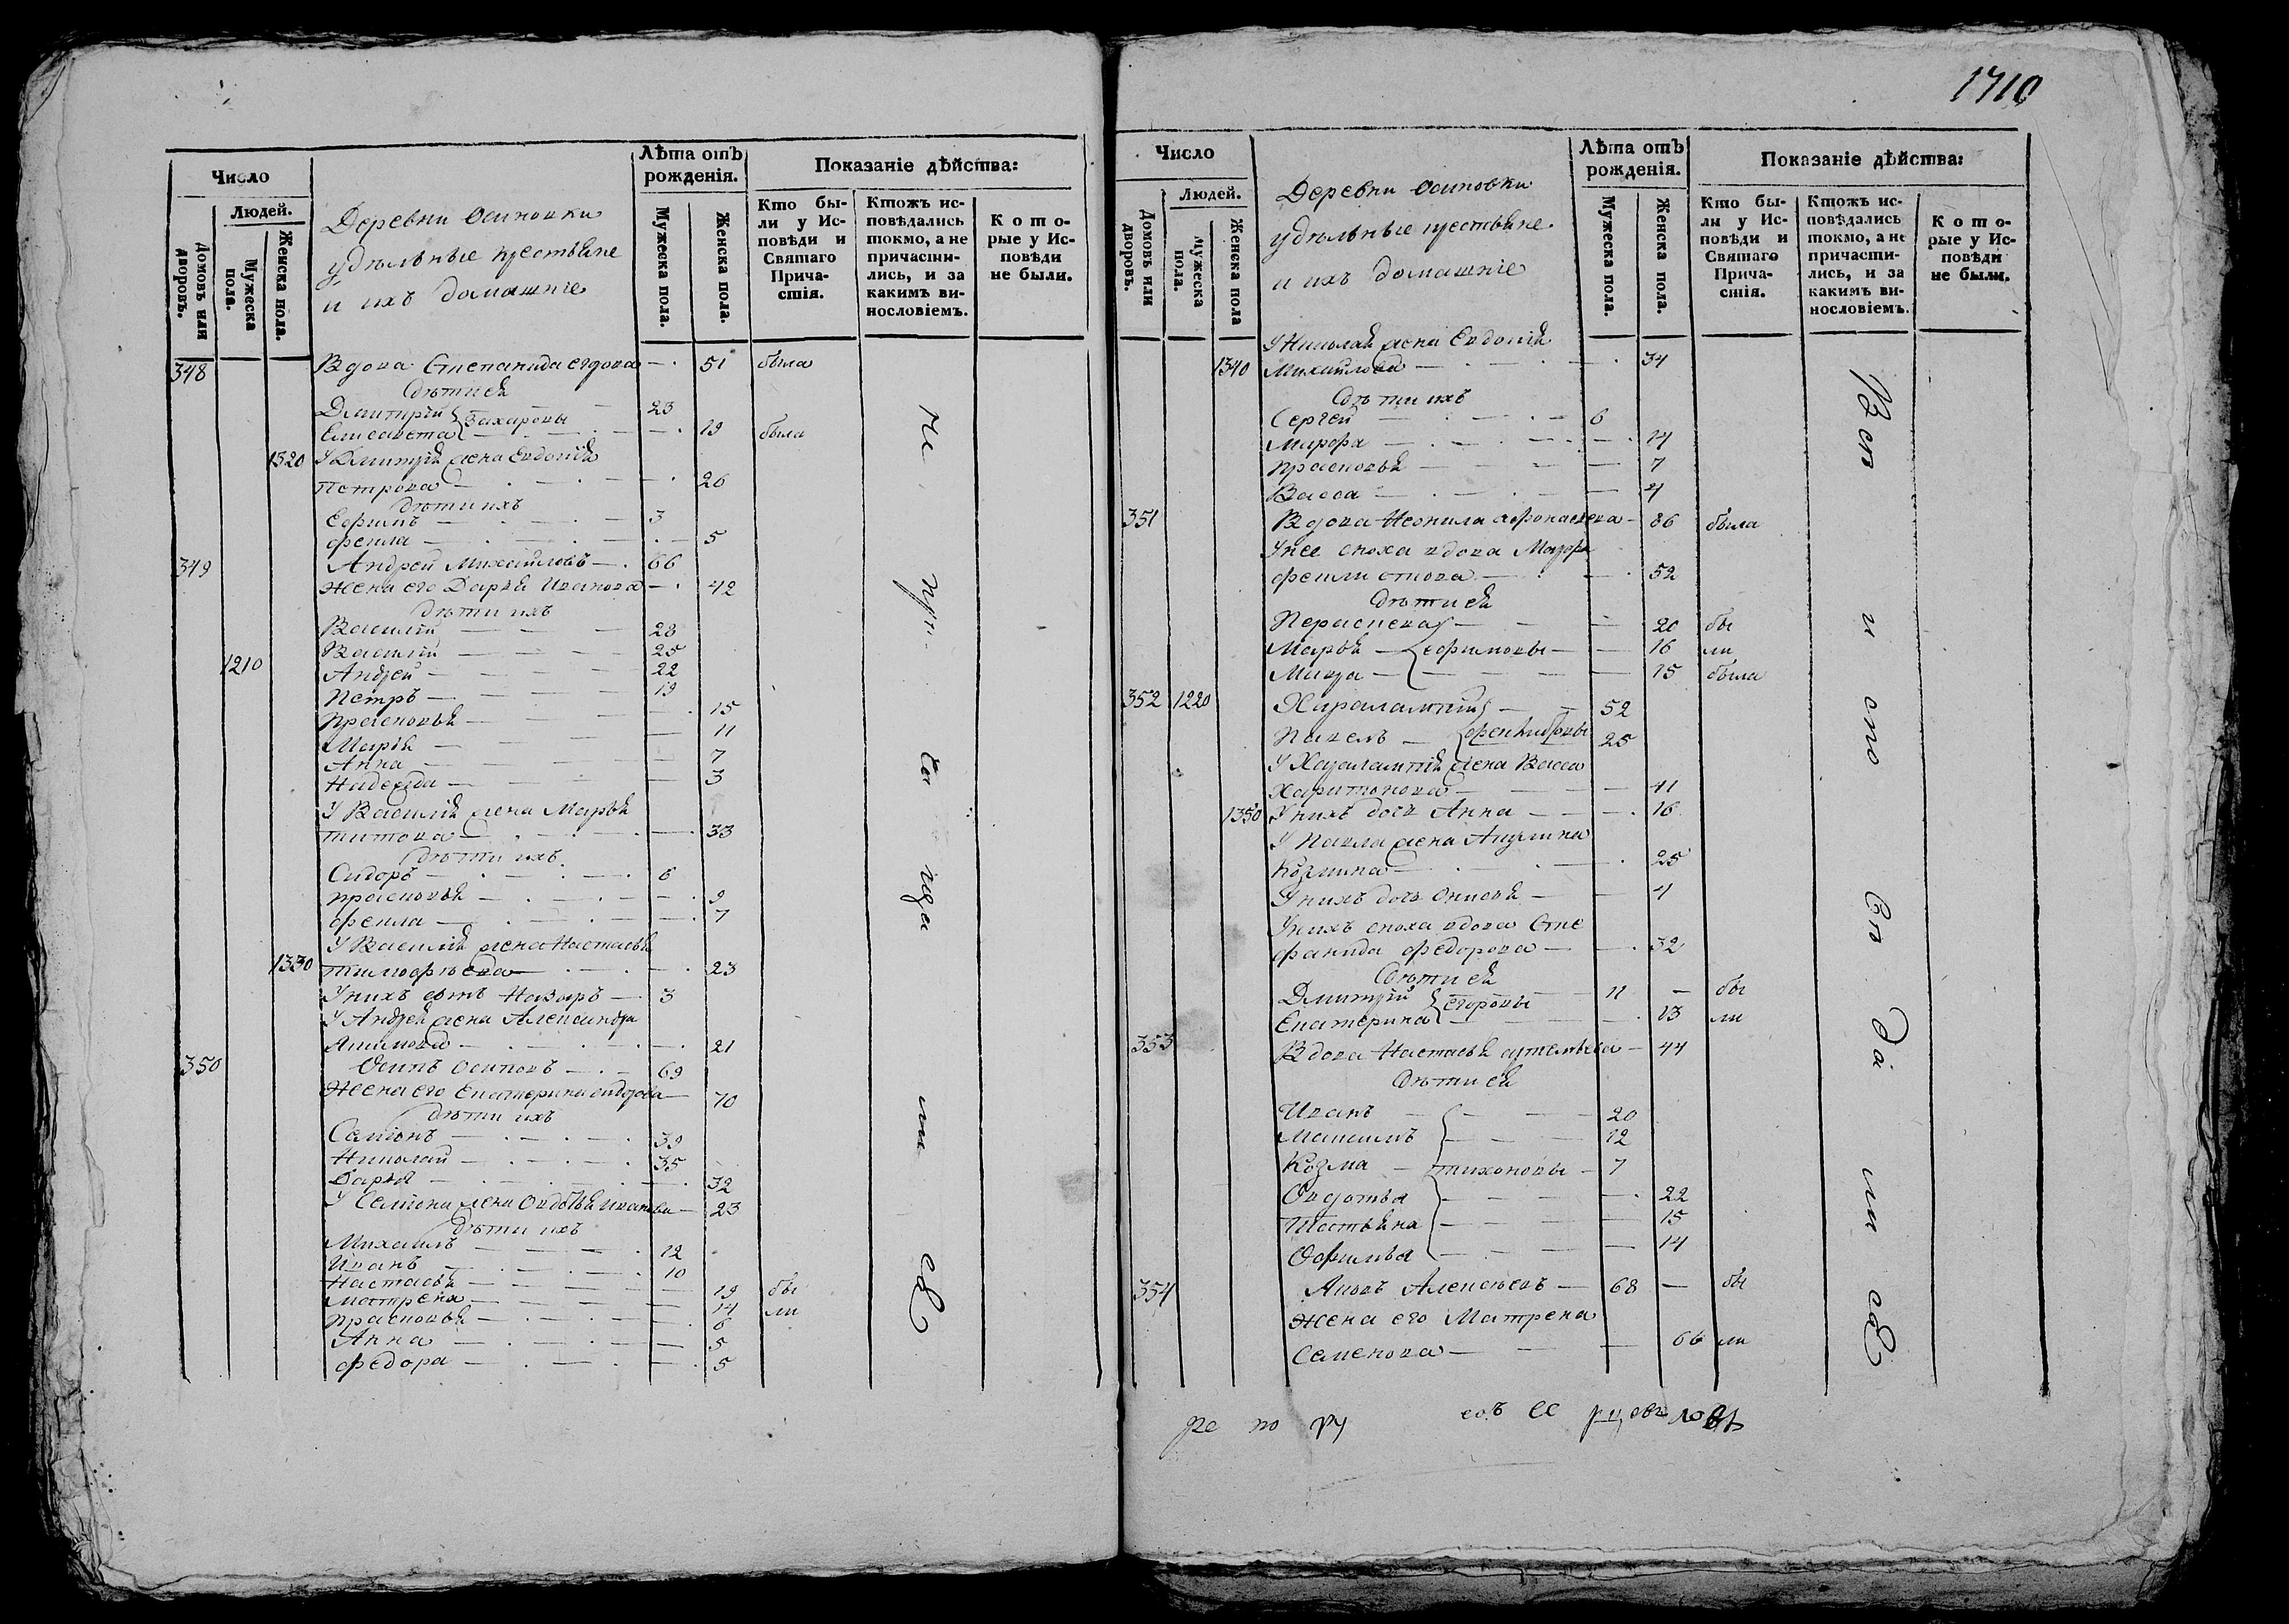 Число
Людей.
Домовъ или дворовъ.
Мужеска пола.
Женска пола.
Деревни Осиновки
удѣльные крестьяне
и ихъ домашніе
Лѣта отъ рожденія.
Мужеска пола.
Женска пола.
Показаніе дѣйства:
Кто были у Исповѣди и Святаго Причастія.
Ктожъ исповѣдались токмо, а не причастились, и за какимъ винословіемъ.
Которые у Исповѣди не были.
348 Вдова Степанида — 51 была
Дѣти ея
Дмитрій 23
Елисавета Захаровы — 19 была
1320 У Дмитрія жена Евдокія
Петрова — 26
Дѣти ихъ
Ефимъ — 3
Фекла — 5
349 Андрей Михайловъ — 66
Жена его Дарья Иванова — 42
Дѣти ихъ
Василій — 28
1210 Василій — 25
Андрей — 22
Петръ — 19
Прасковья — 15
Марія — 11
Анна — 7
Надежда — 3
У Василія жена Марья
Титова — 33
Дѣти ихъ
Сидоръ — 6
Прасковья — 9
Фекла — 7
У Василія жена Настасья
1330 Тимофѣева — 23
У нихъ сынъ Назаръ — 3
У Андрея жена Александра
Акимова — 21
350 Осипъ Осиповъ — 69
Жена его Екатерина Сидорова — 70
Дѣти ихъ
Саміонъ — 39
Николай — 35
Дарья — 32
У Саміона жена Овдотья Иванова — 23
Дѣти ихъ
Михаилъ — 12
Иванъ — 10
Настасья — 19 бы
Матрена — 14 ли
Прасковья — 6
Анна — 5
Федора — 5
1710
Число
Людей.
Домовъ или дворовъ.
Мужеска пола.
Женска пола
Деревни Осиновки
удѣльные крестьяне
и ихъ домашніе
Лѣта отъ рожденія.
Мужеска пола.
Женска пола.
Показаніе дѣйства:
Кто были у Исповѣди и Святаго Причастія.
Ктожъ исповѣдались токмо, а не причастились, и за какимъ винословіемъ.
Которые у Исповѣди не были.
У Николая жена Евдокія
1340 Михайлова — 34
Дѣти ихъ
Сергей — 6
Марфа — 14
Прасковья — 7
Васса — 4
351 Вдова Неонила Афонасьева — 86 была
У нее сноха вдова Марфа
Феклистова — 52
Дѣти ея
Пераскева — 20 бы
Марья — Ефимовы — 16 ли
Мавра — 15 была
352 1220 Харалампій — 52
Павелъ — 25
У Харалампія жена Васса
Харитонова — 41
1350 У нихъ дочь Анна — 16
У Павла жена Акулина
Козмина — 25
У нихъ дочь Онисья — 4
У нихъ сноха вдова Сте
фанида Федорова — 32
Дѣти ея
Дмитрій 11 — бы
Екатерина Егоровы — 13 ли
353 Вдова Настасья Артемьева — 44
Дѣти ея
Иванъ — 20
Максимъ — 12
Козма — Тихоновы — 7
Овдотья — 22
Татьяна — 15
Офимья — 14
354 Яковъ Алексѣевъ — 68 — бы
Жена его Матрена
Семенова — 66 ли